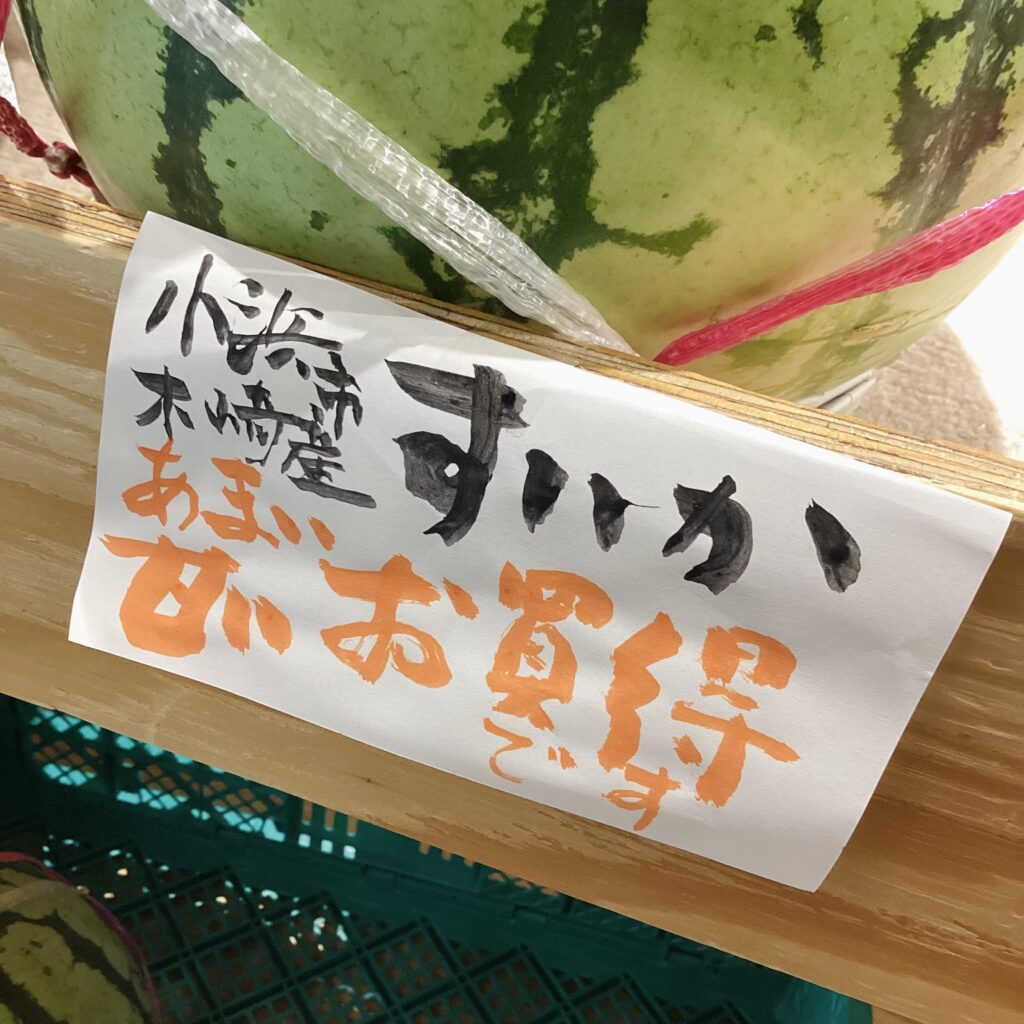 小浜市
木崎産
すいか
あまい
甘い お買得
です